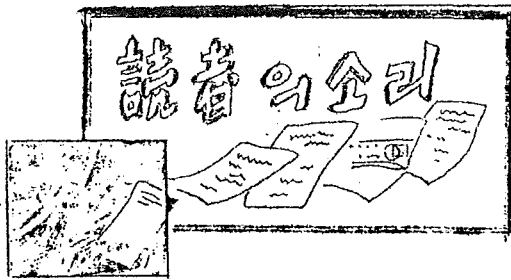 讀者의 소리